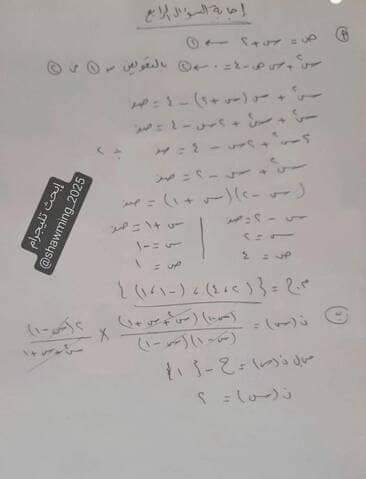 إجابة السؤال الرابع
(أ) ص = س + ٢ ← ①
س² + س ص - ٤ = ٠ ← ② بالتعويض من ① في ②
س² + س (س + ٢) - ٤ = صفر
س² + س² + ٢س - ٤ = صفر
٢س² + ٢س - ٤ = صفر ÷ ٢
س² + س - ٢ = صفر
(س - ٢)(س + ١) = صفر
س - ٢ = صفر | س + ١ = صفر
س = ٢ | س = -١
ص = ٤ | ص = ١
م.ح = {(٢، ٤)، (-١، ١)}
(ب) ن(س) = (س-١)(س²+س+١) / (س-١)(س-١) × ٢(س-١) / س²+س+١
مجال ن(س) = ح - {١}
ن(س) = ٢
إبحث تليجرام
@shawming_2025